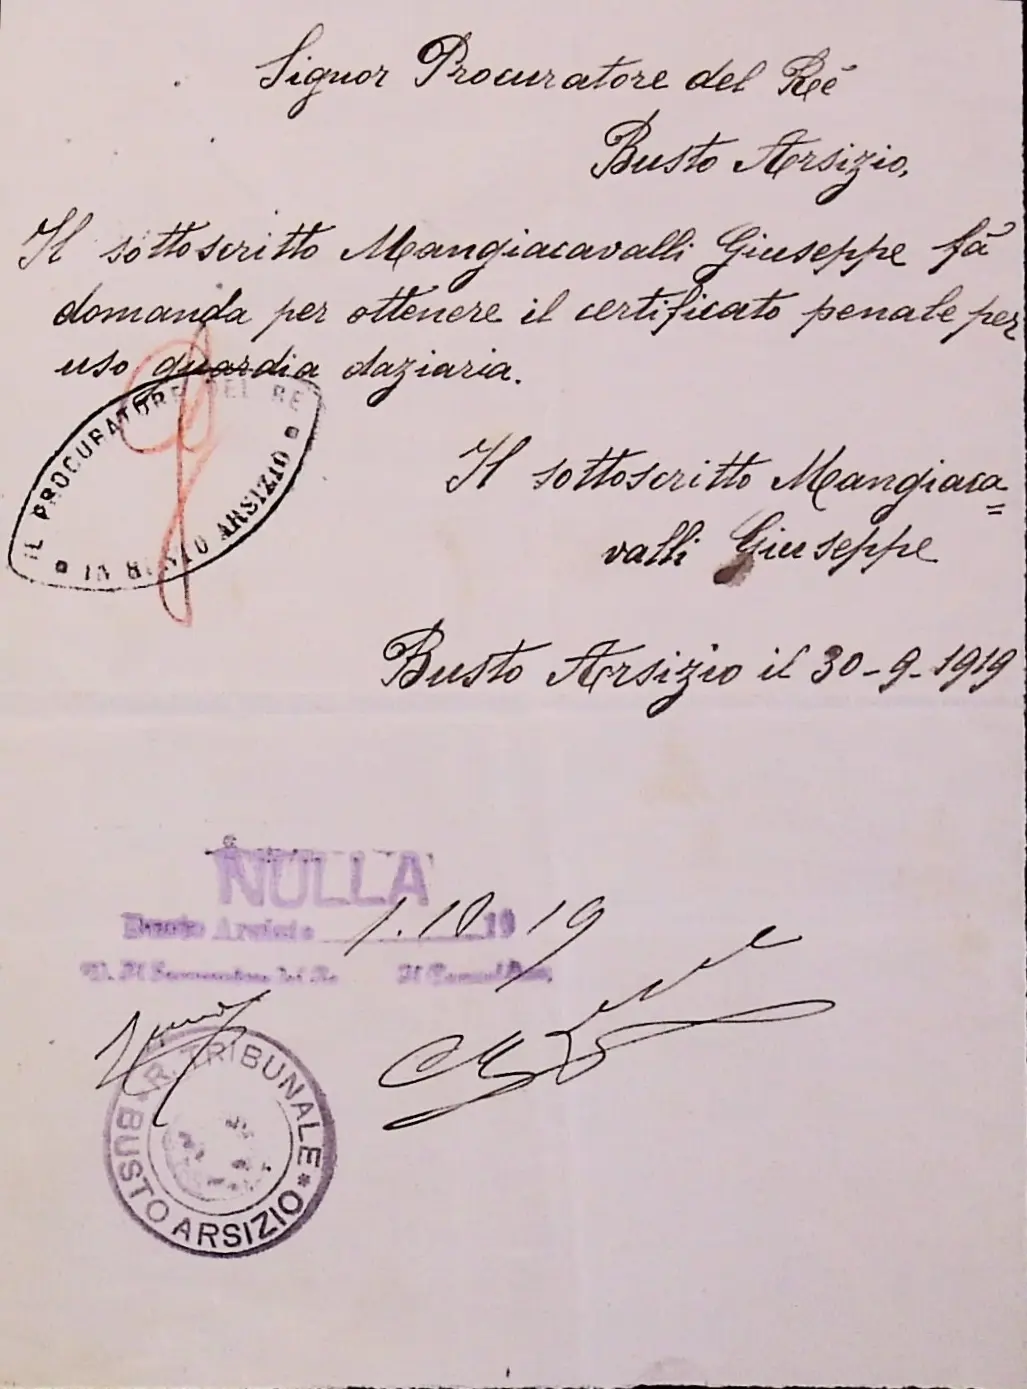 Signor Procuratore del Rè
Busto Arsizio,
Il sottoscritto Mangiacavalli Giuseppe fà
domanda per ottenere il certificato penale per
uso guardia daziaria.
IL PROCURATORE DEL RE
DI BUSTO ARSIZIO
Il sottoscritto Mangiaca=
valli Giuseppe
Busto Arsizio il 30-9-1919
NULLA
Busto Arsizio 1.10 1919
Il Procuratore del Re Il Cancelliere
R. TRIBUNALE
BUSTO ARSIZIO